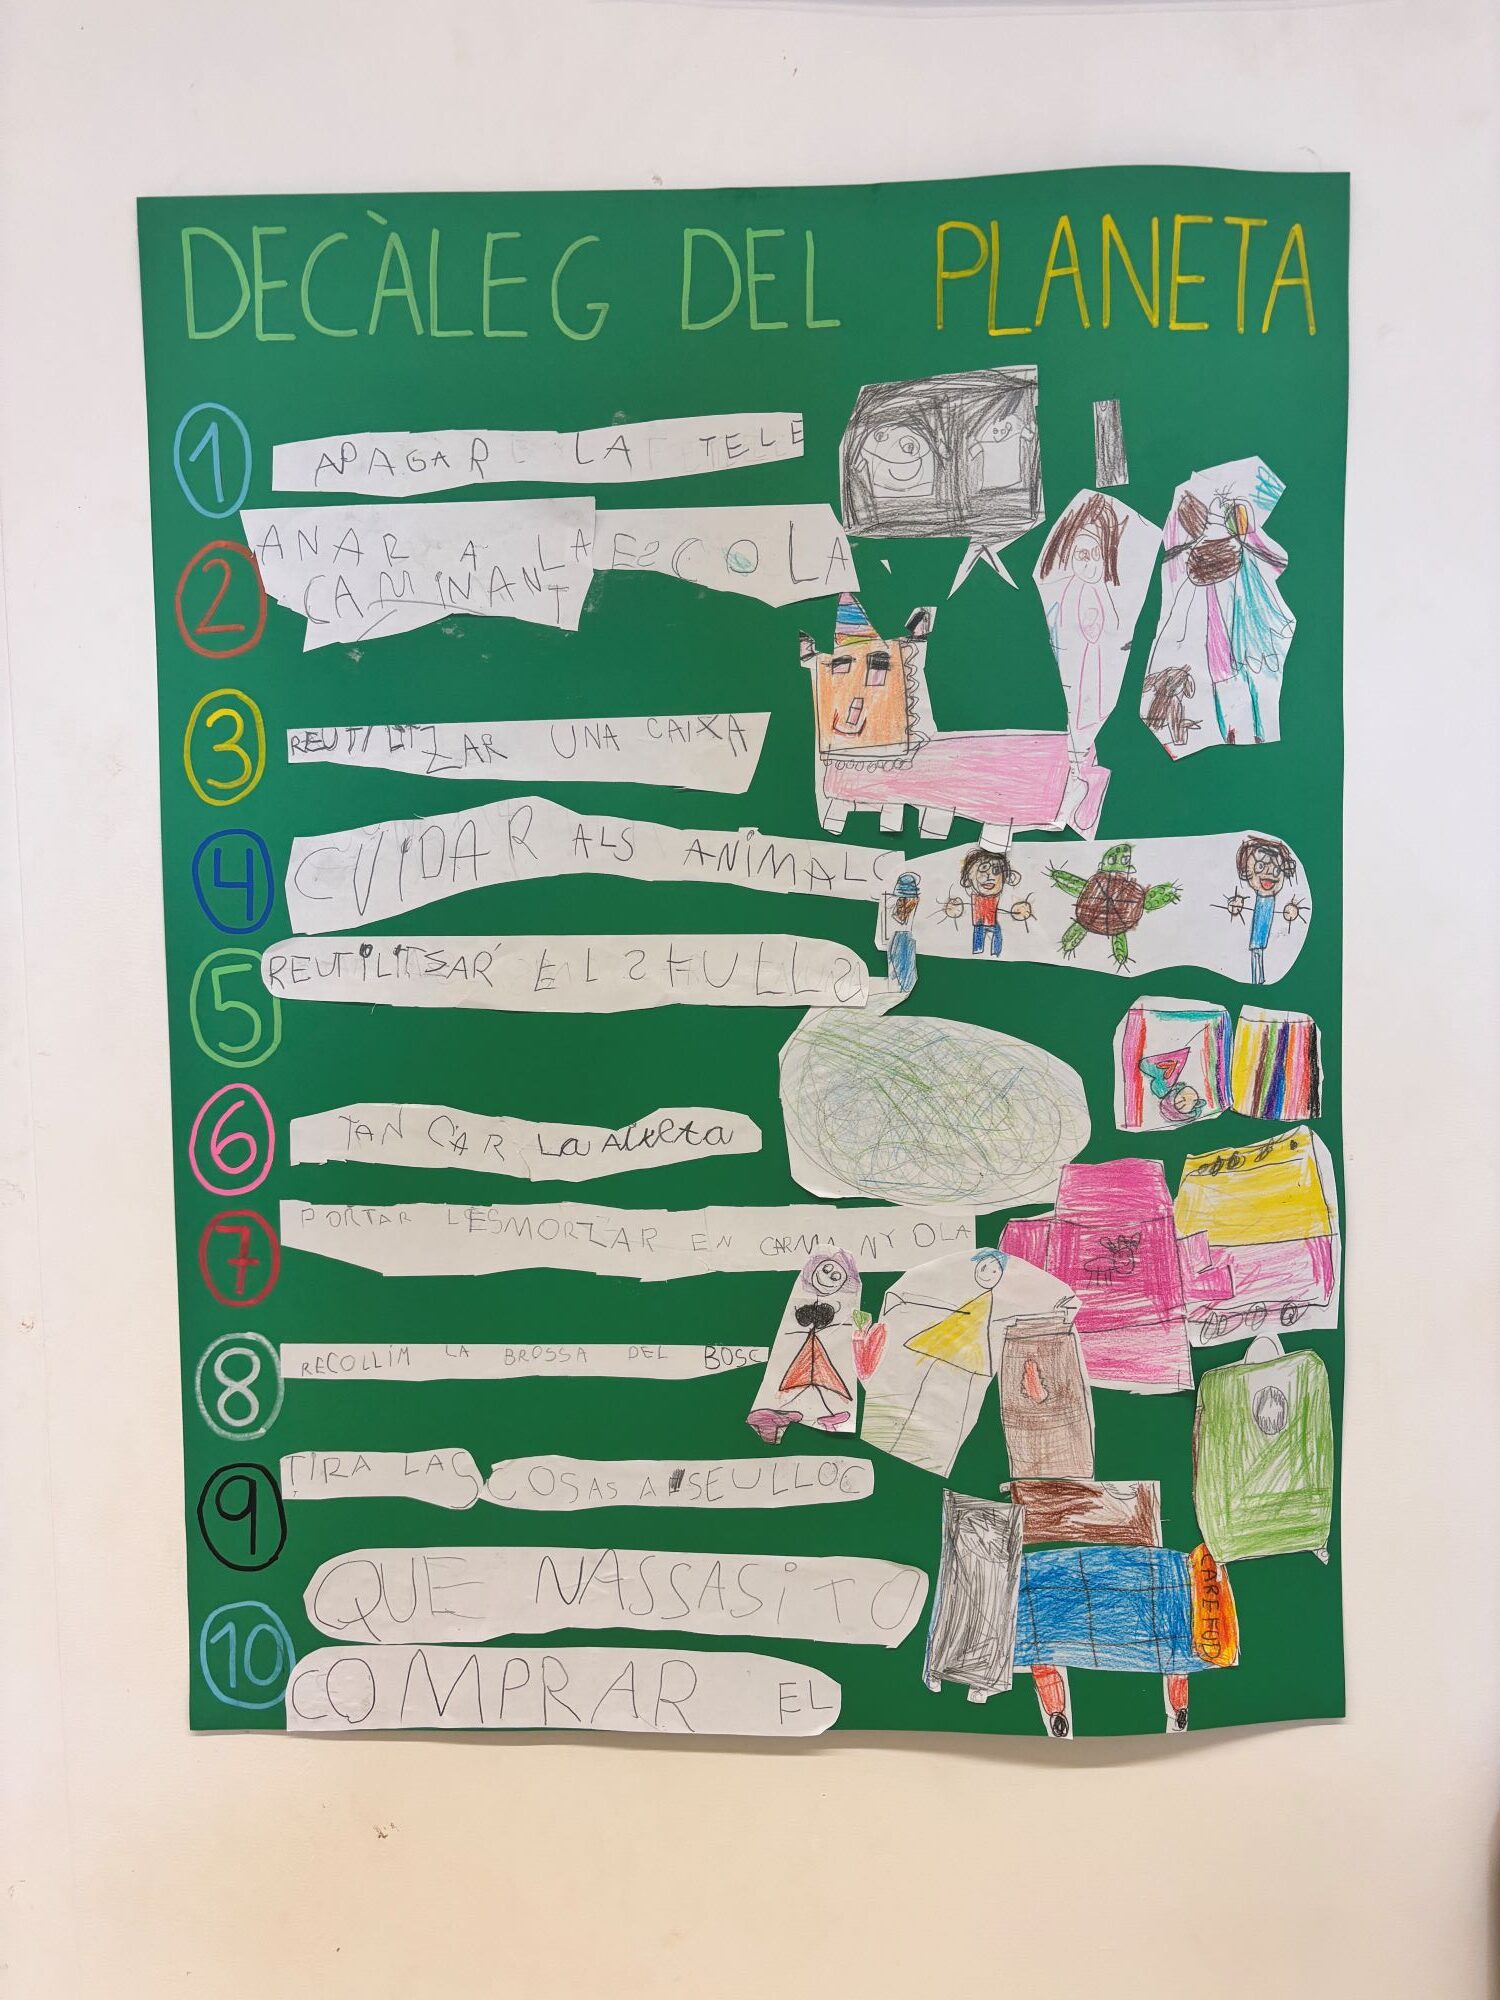 DECÀLEG DEL PLANETA
1 APAGAR LA TELE
2 ANAR A LA ESCOLA
CAMINANT
3 REUTILITZAR UNA CAIXA
4 CUIDAR ALS ANIMALS
5 REUTILITSAR ELS FULLS
6 TANCAR La AIXETA
7 PORTAR LESMORTZAR EN CARMANYOLA
8 RECOLLIM LA BROSSA DEL BOSC
9 TIRA LAS COSAS AlSEULLOC
QUE NASSASiTO
10 COMPRAR EL
CAREFOD